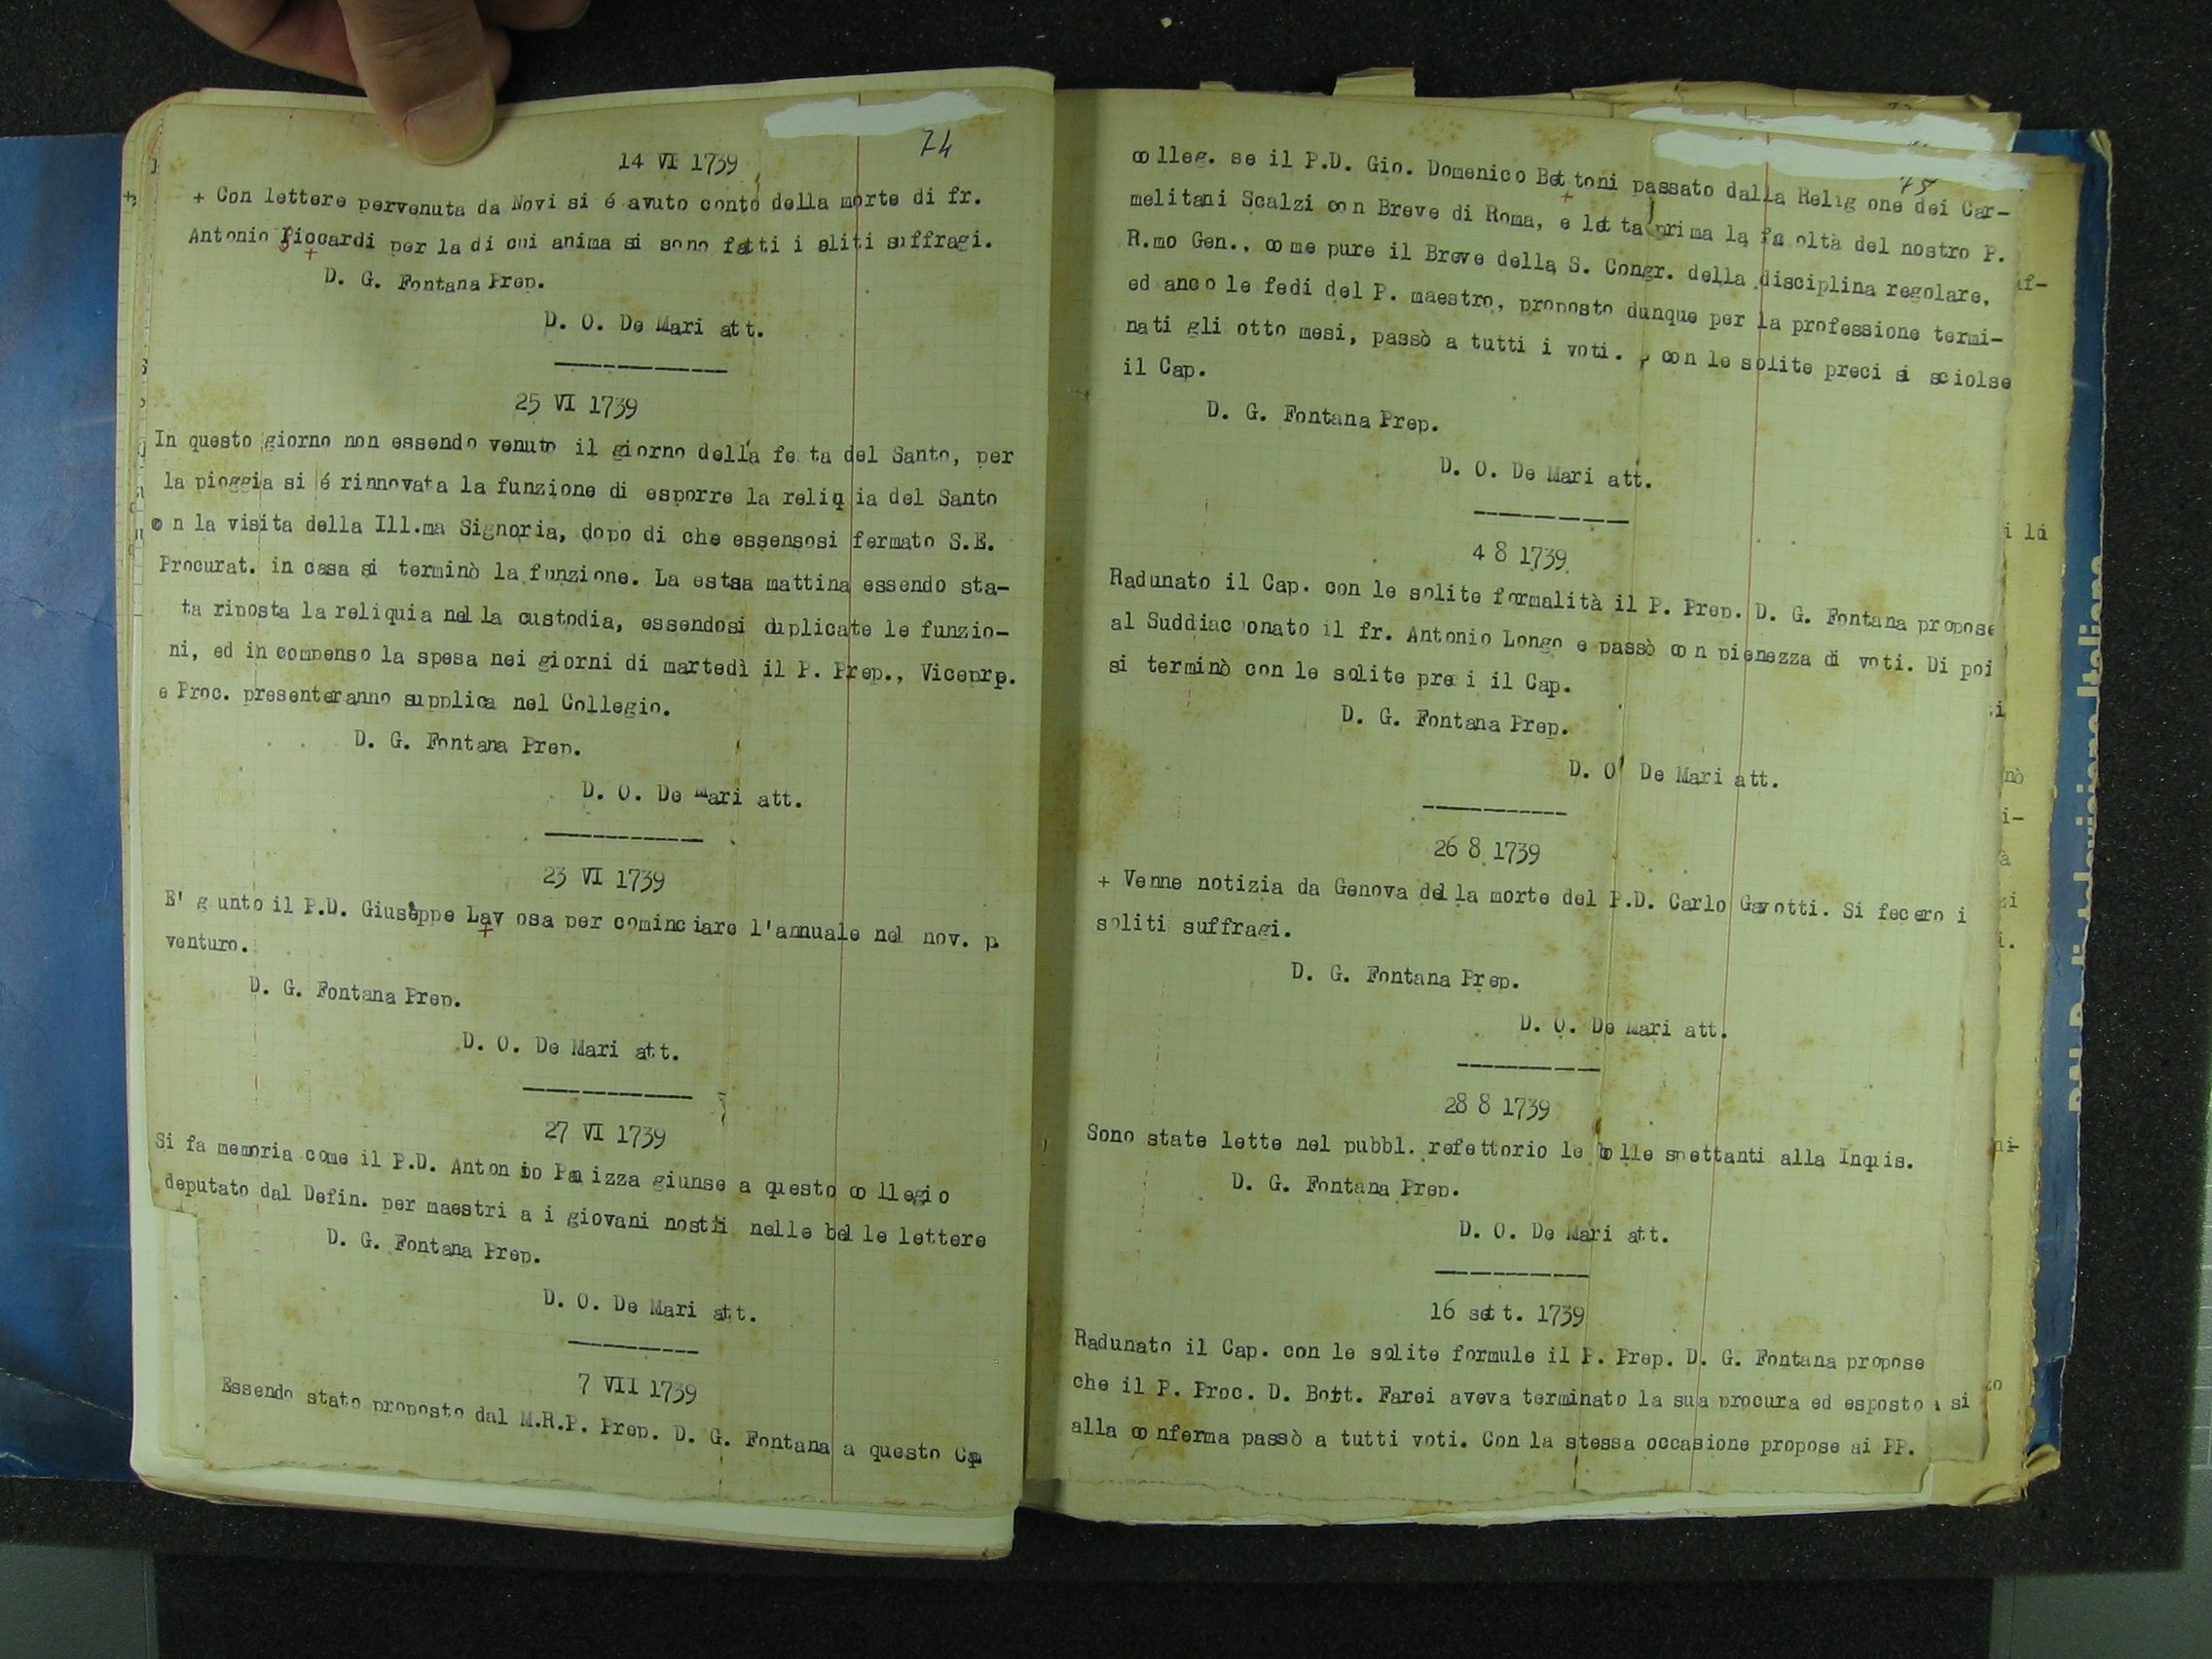 74
14 VI 1739
+ Con lettere pervenuta da Novi si é avuto conto della morte di fr.
Antonio Riccardi per la di cui anima si sono fatti i sliti suffragi.
D. G. Fontana Prep.
D. O. De Mari att.
-------------
25 VI 1739
In questo giorno non essendo venuto il giorno della fe ta del Santo, per
la pioggia si é rinnovata la funzione di esporre la reliq ia del Santo
con la visita della Ill.ma Signoria, dopo di che essensosi fermato S.E.
Procurat. in casa si terminò la funzione. La estsa mattina essendo sta-
ta riposta la reliquia nella custodia, essendosi duplicate le funzio-
ni, ed in compenso la spesa nei giorni di martedì il P. Prep., Viceprp.
e Proc. presenteranno supplica nel Collegio.
D. G. Fontana Prep.
D. O. De Mari att.
------------
23 VI 1739
E' g unto il P.D. Giuseppe Lav osa per cominciare l'annuale nel nov. p.
venturo.
D. G. Fontana Prep.
D. O. De Mari att.
-------------
27 VI 1739
Si fa memoria come il P.D. Antonio Pa izza giunse a questo collegio
deputato dal Defin. per maestri a i giovani nostri nelle belle lettere
D. G. Fontana Prep.
D. O. De Mari att.
----------
7 VII 1739
Essendo stato proposto dal M.R.P. Prep. D. G. Fontana a questo Cap
75
colleg. se il P.D. Gio. Domenico Bettoni passato dalla Relig one dei Car-
melitani Scalzi con Breve di Roma, e letta prima la facoltà del nostro P.
R.mo Gen., come pure il Breve della S. Congr. della disciplina regolare,
ed anco le fedi del P. maestro, proposto dunque per la professione termi-
nati gli otto mesi, passò a tutti i voti. , con le solite preci si sciolse
il Cap.
D. G. Fontana Prep.
D. O. De Mari att.
------------
4 8 1739
Radunato il Cap. con le solite formalità il P. Prep. D. G. Fontana propose
al Suddiac onato il fr. Antonio Longo e passò con pienezza di voti. Di poi
si terminò con le solite preci il Cap.
D. G. Fontana Prep.
D. O De Mari att.
-----------
26 8 1739
+ Venne notizia da Genova della morte del P.D. Carlo Gavotti. Si fecero i
soliti suffragi.
D. G. Fontana Prep.
D. O. De Mari att.
-----------
28 8 1739
Sono state lette nel pubbl. refettorio le bolle spettanti alla Inquis.
D. G. Fontana Prep.
D. O. De Mari att.
------------
16 sett. 1739
Radunato il Cap. con le solite formule il P. Prep. D. G. Fontana propose
che il P. Proc. D. Bott. Farei aveva terminato la sua procura ed esposto si
alla conferma passò a tutti voti. Con la stessa occasione propose ai PP.